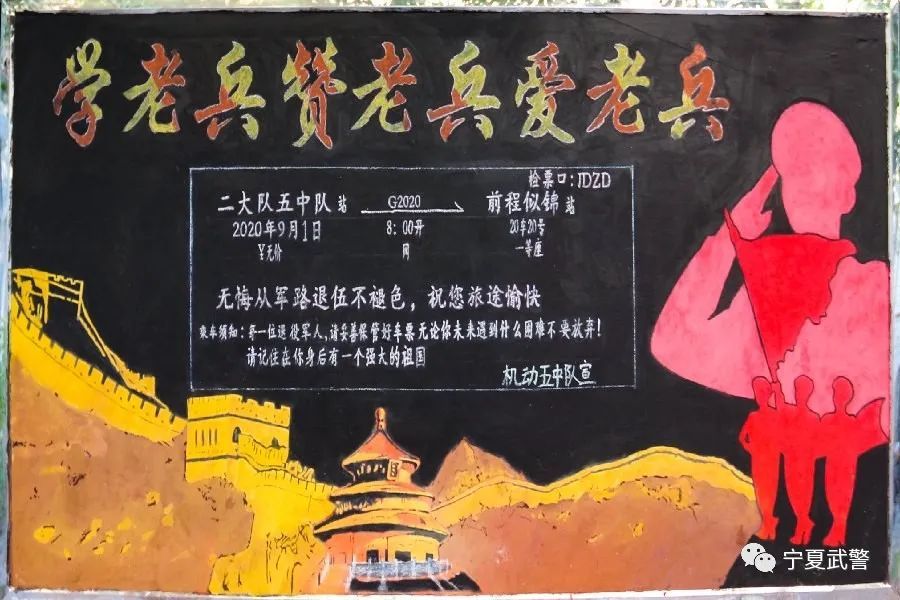 学老兵赞老兵爱老兵
检票口：JDZD
二大队五中队站 G2020 前程似锦站
2020年9月1日 8：00开 20车20号
￥无价 网 一等座
无悔从军路退伍不褪色，祝您旅途愉快
乘车须知：每一位退役军人，请妥善保管好车票无论你未来遇到什么困难不要放弃！
请记住在你身后有一个强大的祖国
机动五中队宣
宁夏武警